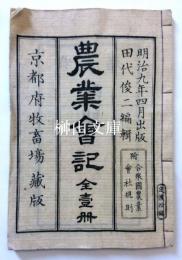 明治九年四月出版
田代俊二編輯
附 合衆国農業
會社規則
農業會記 全壹冊
京都府牧畜場藏版
榊山文庫